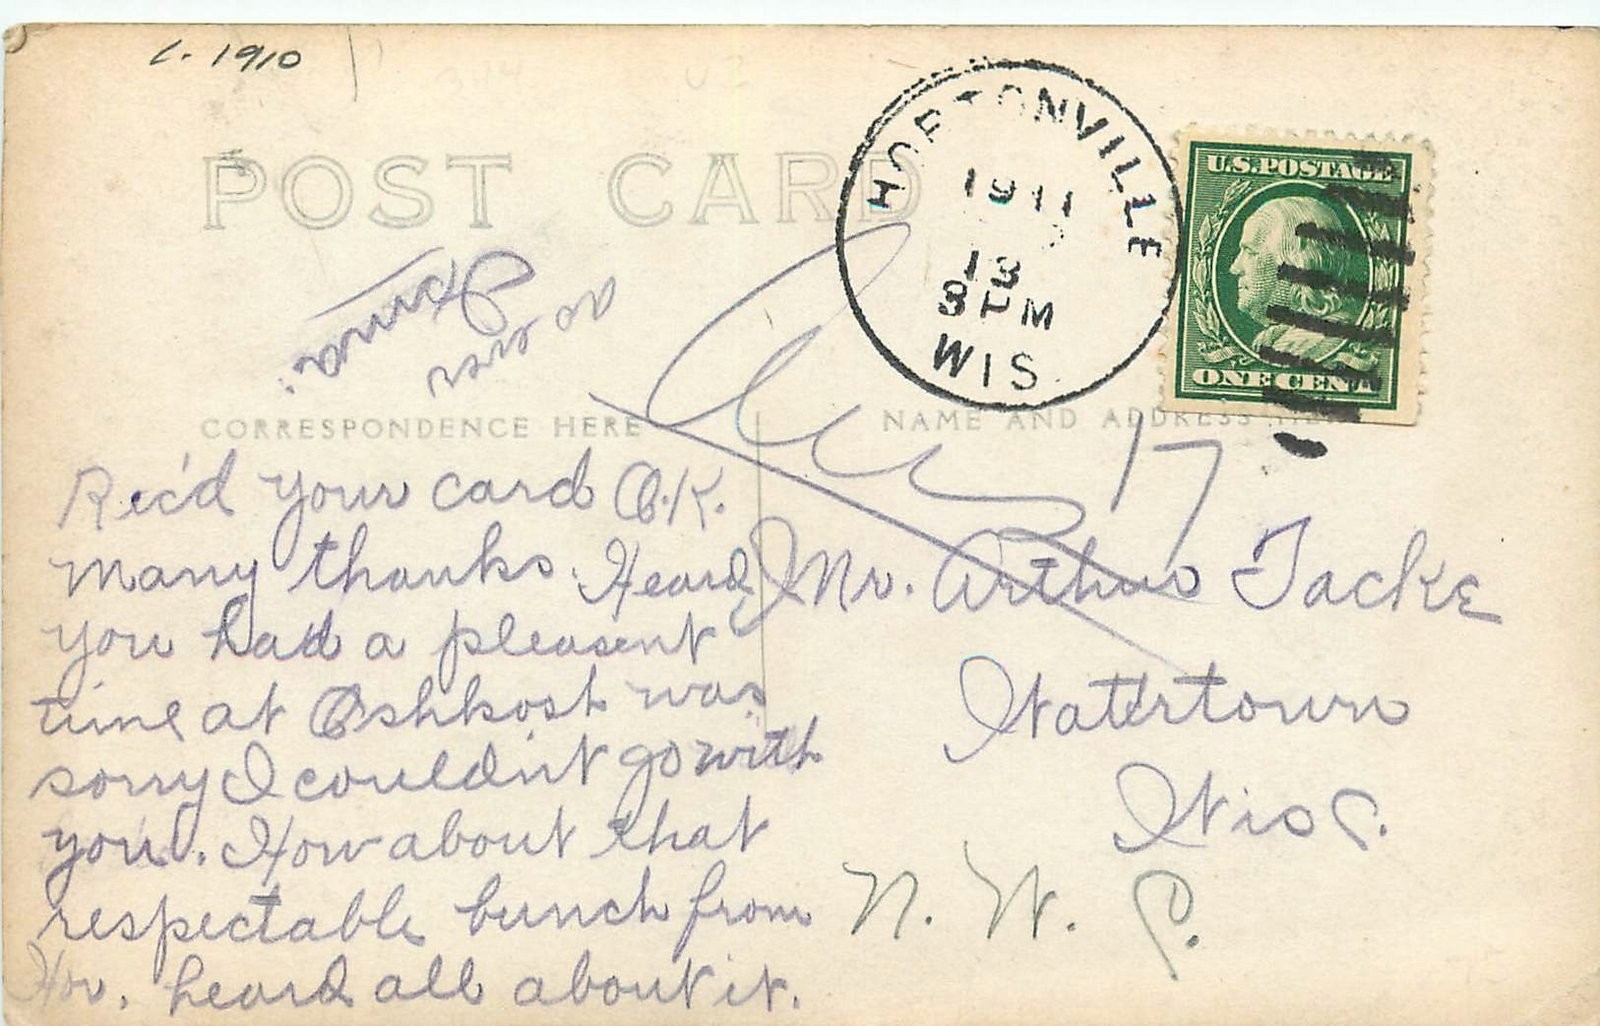 c. 1910
POST CARD
HORTONVILLE
1911
13
8 PM
WIS.
U.S. POSTAGE
ONE CENT
CORRESPONDENCE HERE
NAME AND ADDRESS HERE
17
Rec'd your card O.K.
many thanks. Heard
you had a pleasent
time at Oshkosh was
sorry I couldn't go with
you. How about that
respectable bunch from
Hor. heard all about it.
Mr. Arthur Tacke
Watertown
Wis.
N. W.